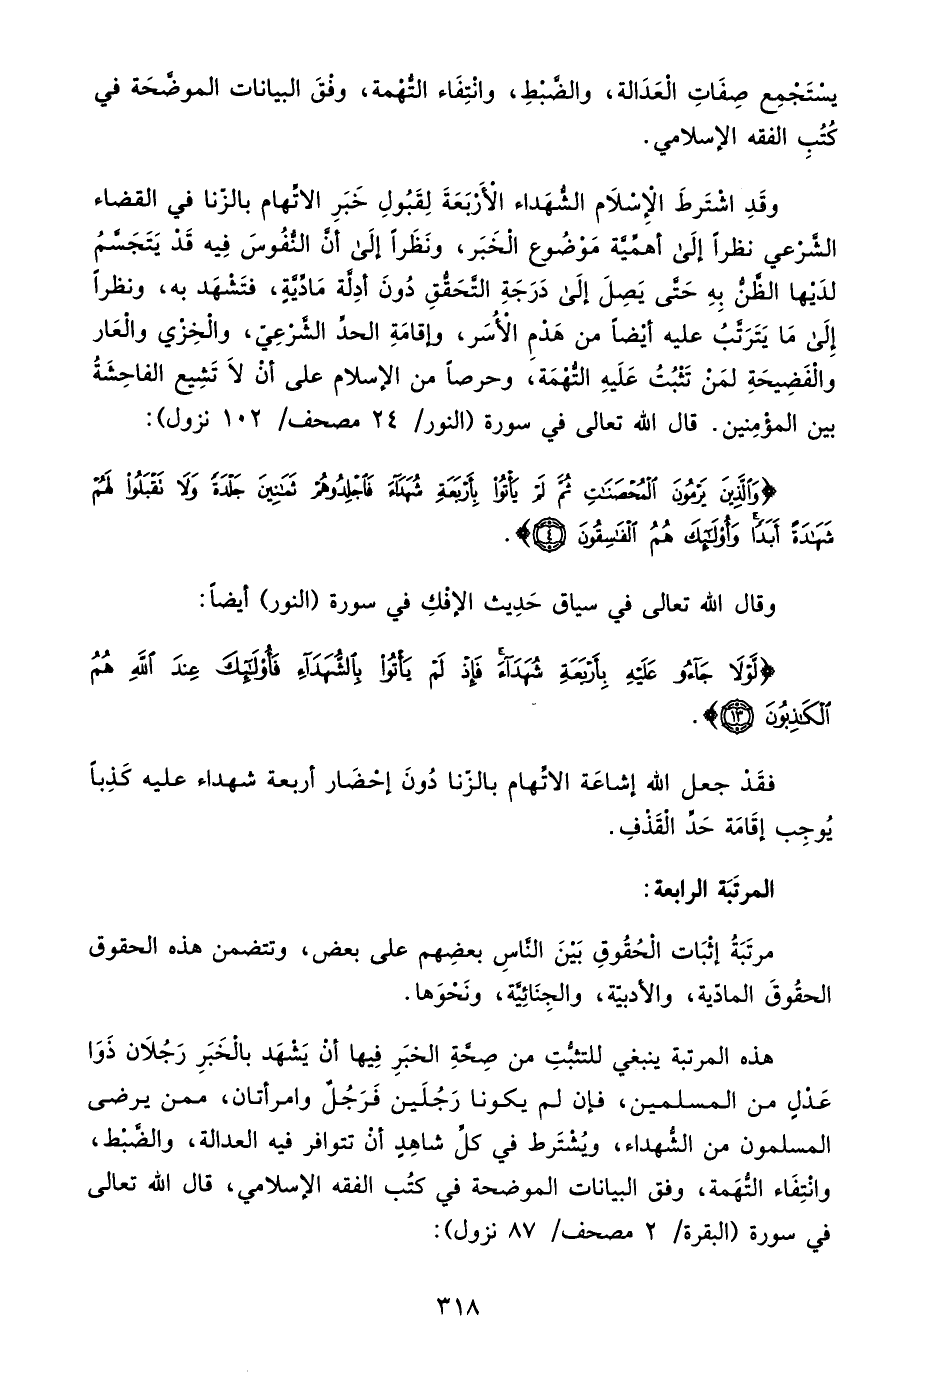 يسْتَجْمِع صِفَاتِ الْعَدَالة، والضَّبْطِ، وانْتِفَاء التُّهْمة، وفْقَ البيانات الموضَّحَة في
كُتُبِ الفقه الإسلامي.
وقَدِ اشْتَرطَ الْإِسْلَام الشُّهَداء الْأَرْبَعَةَ لِقَبُولِ خَبَرِ الاتِّهام بالزّنا في القضاء
الشَّرْعي نظراً إلَىٰ أهمِّيَّة مَوْضُوع الْخَبَر، ونَظَراً إلىٰ أنَّ النُّفُوسَ فِيه قَدْ يَتَجَسَّمُ
لدَيْها الظَّنُّ بِهِ حَتَّى يَصِلَ إلَىٰ دَرَجَةِ التَّحَقُّقِ دُونَ أدِلَّة مَادِّيَّةٍ، فتَشْهَد به، ونظراً
إِلَىٰ مَا يَتَرَتَّبُ عليه أيْضاً من هَدْمِ الْأُسَر، وإقامَةِ الحدِّ الشَّرْعِيّ، والْخِزْي والْعَار
والْفَضِيحَةِ لمَنْ تَثْبُتُ عَلَيهِ التُّهْمَة، وحرصاً من الإسلام على أنْ لاَ تَشِيع الفاحِشَةُ
بين المؤْمِنين. قال الله تعالى في سورة (النور/ ٢٤ مصحف/ ١٠٢ نزول):
﴿وَٱلَّذِينَ يَرْمُونَ ٱلْمُحْصَنَٰتِ ثُمَّ لَمْ يَأْتُوا۟ بِأَرْبَعَةِ شُهَدَآءَ فَٱجْلِدُوهُمْ ثَمَٰنِينَ جَلْدَةً وَلَا تَقْبَلُوا۟ لَهُمْ
شَهَٰدَةً أَبَدًا ۚ وَأُو۟لَٰٓئِكَ هُمُ ٱلْفَٰسِقُونَ ﴿٤﴾﴾.
وقال الله تعالى في سياق حَدِيث الإفْكِ في سورة (النور) أيضاً:
﴿لَّوْلَا جَآءُو عَلَيْهِ بِأَرْبَعَةِ شُهَدَآءَ ۚ فَإِذْ لَمْ يَأْتُوا۟ بِٱلشُّهَدَآءِ فَأُو۟لَٰٓئِكَ عِندَ ٱللَّهِ هُمُ
ٱلْكَٰذِبُونَ ﴿١٣﴾﴾.
فقَدْ جعل الله إشاعَة الاتِّهام بالزّنا دُونَ إحْضَار أربعة شهداء عليه كَذِباً
يُوجِب إقَامَة حَدِّ الْقَذْفِ.
المرتَبَة الرابعة:
مرتَبَةُ إثْبَات الْحُقُوقِ بَيْنَ النَّاسِ بعضِهم على بعض، وتتضمن هذه الحقوق
الحقُوقَ المادّية، والأدبيّة، والجِنَائِيَّة، ونَحْوَها.
هذه المرتبة ينبغي للتثبُّتِ من صِحَّةِ الخبَرِ فِيها أنْ يَشْهَد بالْخَبَرِ رَجُلَان ذَوَا
عَدْلٍ من المسلمين، فإن لم يكونا رَجُلَين فَرَجُلٌ وامرأتان، ممن يرضى
المسلمون من الشُّهداء، ويُشْتَرط في كلِّ شاهِدٍ أنْ تتوافر فيه العدالة، والضَّبْط،
وانْتِفَاء التُّهَمة، وفق البيانات الموضحة في كتُب الفقه الإسلامي، قال الله تعالى
في سورة (البقرة/ ٢ مصحف/ ٨٧ نزول):
٣١٨